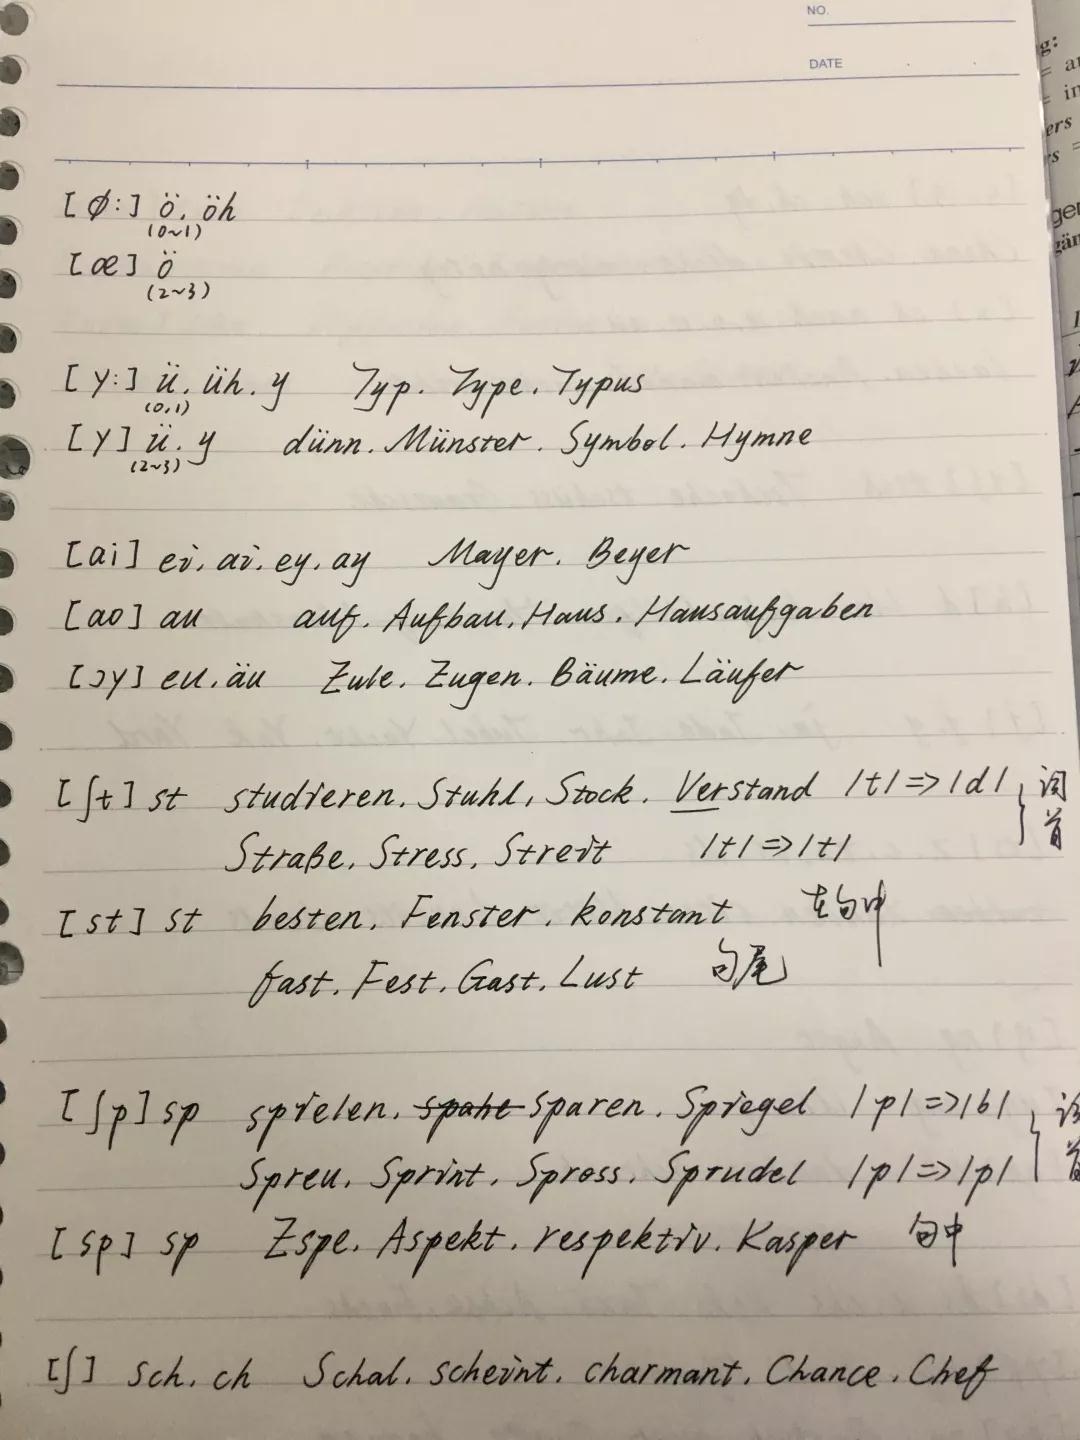 NO.
DATE
[ø:] ö. öh
(0~1)
[œ] ö
(2~3)
[y:] ü. üh. y Typ. Type. Typus
(0,1)
[Y] ü. y dünn. Münster. Symbol. Hymne
(2~3)
[ai] ei. ai. ey. ay Mayer. Beyer
[ao] au auf. Aufbau. Haus. Hausaufgaben
[ɔy] eu. äu Eule. Eugen. Bäume. Läufer
[ʃt] st studieren. Stuhl, Stock. Verstand |t|=>|d| 词首
Straße. Stress. Streit |t|=>|t|
[st] st besten. Fenster. konstant 在句中
fast. Fest. Gast. Lust 句尾
[ʃp] sp spielen. spahe sparen. Spiegel |p|=>|b| 词首
Spreu. Sprint. Spross. Sprudel |p|=>|p|
[sp] sp Espe. Aspekt. respektiv. Kasper 句中
[ʃ] sch. ch Schal. scheint. charmant. Chance. Chef